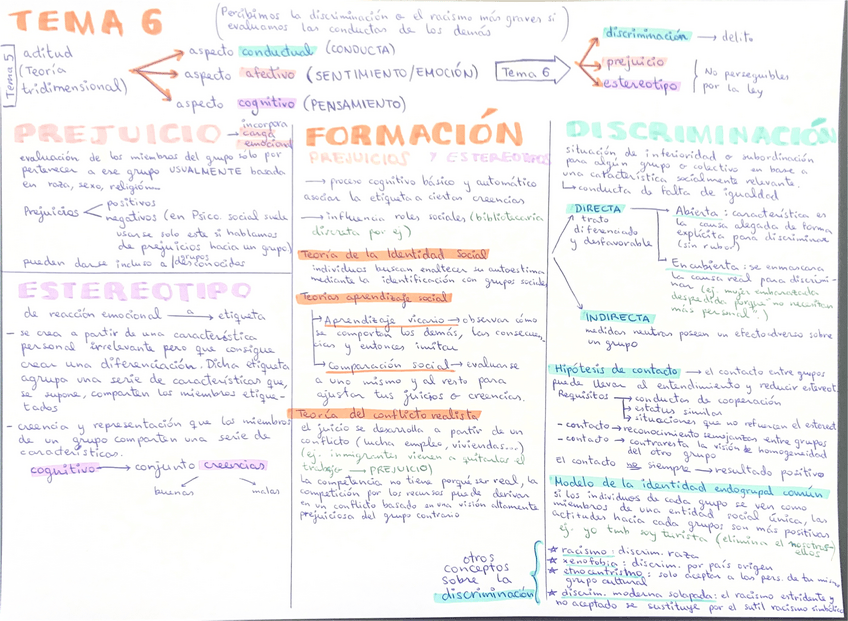 TEMA 6
(Percibimos la discriminación o el racismo más graves si
evaluamos las conductas de los demás)
Tema 5
actitud
(Teoría
tridimensional)
aspecto conductual (CONDUCTA)
aspecto afectivo (SENTIMIENTO/EMOCIÓN)
aspecto cognitivo (PENSAMIENTO)
Tema 6
discriminación → delito
prejuicio
estereotipo
No perseguibles
por la ley
PREJUICIO → incorpora
carga
emocional
evaluación de los miembros del grupo solo por
pertenecer a ese grupo USUALMENTE basada
en raza, sexo, religión
Prejuicios
positivos
negativos (en Psico. social suele
usarse solo este si hablamos
de prejuicios hacia un grupo)
pueden darse incluso a grupos
desconocidos
ESTEREOTIPO
de reacción emocional a → etiqueta
- se crea a partir de una característica
personal irrelevante pero que consigue
crear una diferenciación. Dicha etiqueta
agrupa una serie de características que,
se supone, comparten los miembros etique-
tados
- creencia y representación que los miembros
de un grupo comparten una serie de
características.
cognitivo → conjunto creencias
buenas
malas
FORMACIÓN
PREJUICIOS Y ESTEREOTIPOS
→ proceso cognitivo básico y automático
asociar la etiqueta a ciertas creencias
→ influencia roles sociales (bibliotecaria
discreta por ej)
Teoría de la Identidad Social
individuos buscan enaltecer su autoestima
mediante la identificación con grupos sociales
Teorías aprendizaje social
Aprendizaje vicario → observar cómo
se comportan los demás, las consecuen-
cias y entonces imitar
Comparación social → evaluarse
a uno mismo y al resto para
ajustar tus juicios o creencias.
Teoría del conflicto realista
el juicio se desarrolla a partir de un
conflicto (lucha empleo, viviendas...)
(ej. inmigrantes vienen a quitarnos el
trabajo → PREJUICIO)
la competencia no tiene porqué ser real, la
competición por los recursos puede derivar
en un conflicto basado en una visión altamente
prejuiciosa del grupo contrario
DISCRIMINACIÓN
situación de inferioridad o subordinación
para algún grupo o colectivo en base a
una característica socialmente relevante.
↳ conducta de falta de igualdad
DIRECTA
trato
diferenciado
y desfavorable
Abierta: característica es
la causa alegada de forma
explícita para discriminar
(sin rubor)
Encubierta: se enmascara
la causa real para discrimi-
nar (ej: mujer embarazada
despedida porque "no necesitan
más personal")
INDIRECTA
medidas neutras posean un efecto adverso sobre
un grupo
Hipótesis de contacto → el contacto entre grupos
puede llevar al entendimiento y reducir estereot.
Requisitos
conductas de cooperación
estatus similar
situaciones que no refuercen el estereot
- contacto → reconocimiento semejanzas entre grupos
- contacto → contrarresta la visión de homogeneidad
del otro grupo
el contacto no siempre → resultado positivo
Modelo de la identidad endogrupal común
si los individuos de cada grupo se ven como
miembros de una entidad social única, las
actitudes hacia cada grupos son más positivas
ej: yo tmb soy turista (elimina el nosotros-
ellos)
otros
conceptos
sobre la
discriminación
★ racismo: discrim. raza
★ xenofobia: discrim. por país origen
★ etnocentrismo: solo aceptar a las pers. de tu mismo
grupo cultural
★ discrim. moderna solapada: el racismo estridente y
no aceptado se sustituye por el sutil racismo simbólico